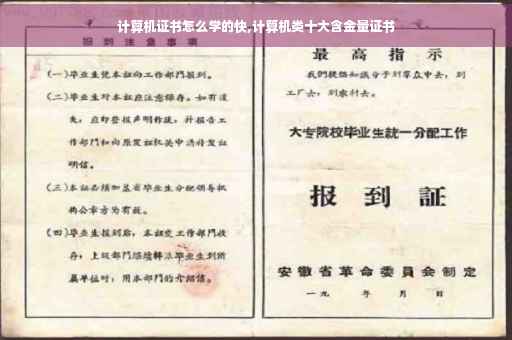 计算机证书怎么学的快,计算机类十大含金量证书
报到注意事项
(一)毕业生凭本证向工作部门报到。
(二)毕业生对本证应注意保存。如有遗
失,应即登报声明作废,并报告工
作部门和向原发证机关申请补发证
明信。
(三)本证必须加盖省毕业生分配领导机
构公章方为有效。
(四)毕业生报到后,本证交工作部门收
存;上级部门
单位时,用本部门的介绍信。
最高指示
我们提倡知识分子到群众中去,到
工厂去,到农村去。
大专院校毕业生统一分配工作
报到証
安徽省革命委員会制定
一九 年 月 日